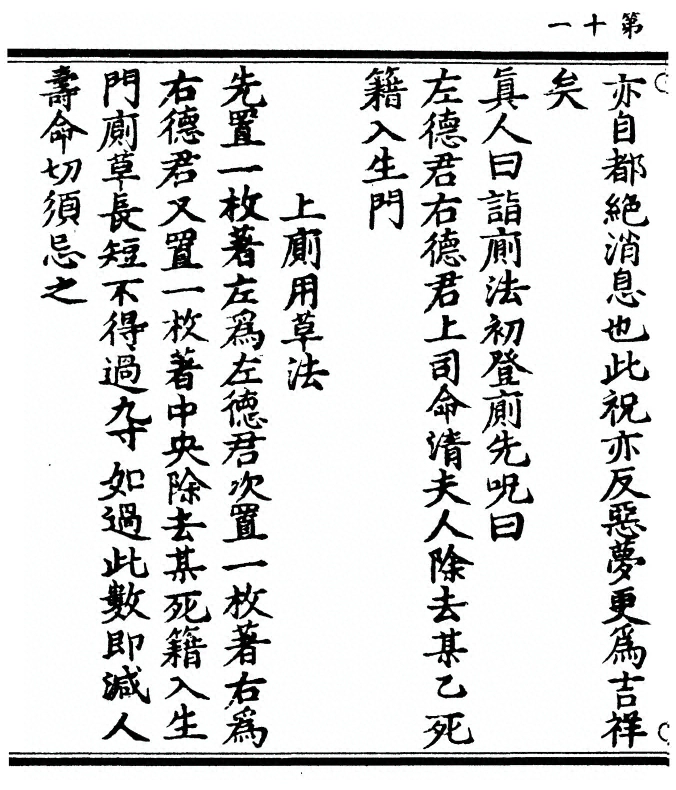 第十一
亦自都絕消息也此祝亦反惡夢更爲吉祥
矣
眞人曰詣廁法初登廁先呪曰
左德君右德君上司命清夫人除去某乙死
籍入生門
上廁用草法
先置一枚著左爲左德君次置一枚著右爲
右德君又置一枚著中央除去某死籍入生
門廁草長短不得過九寸如過此數即減人
壽命切須忌之